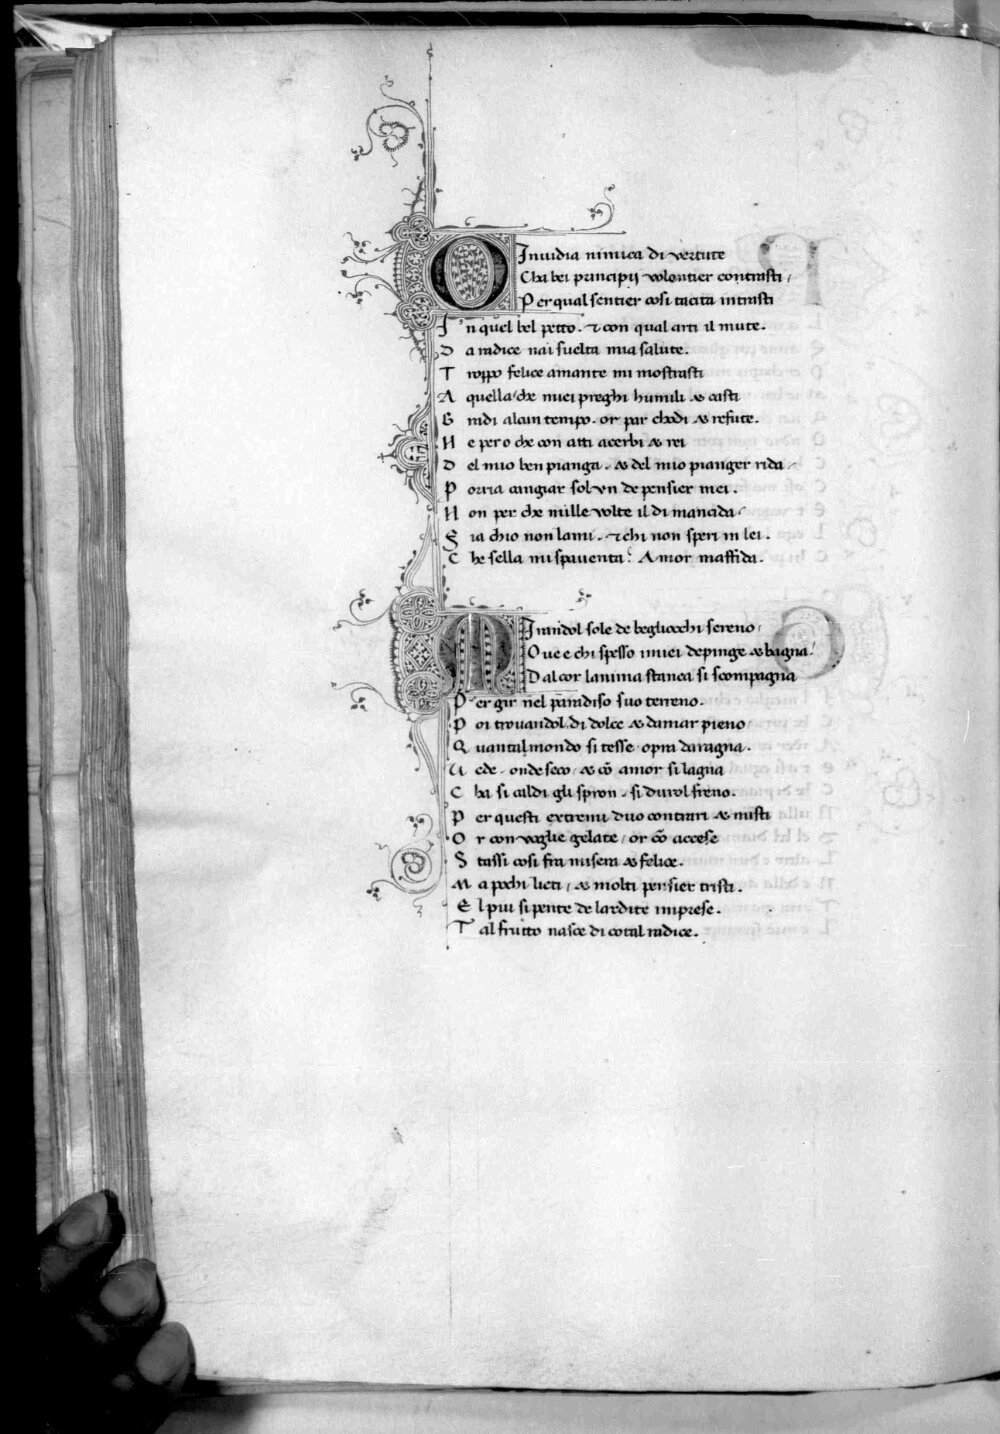 O Inuidia nimica di vertute
Cha bei principij volentier contrasti /
Per qual sentier cosi tacita intrasti
In quel bel petto. & con qual arti il mute.
Da radice nai suelta mia salute.
Troppo felice amante mi mostrasti
A quella che miei preghi humili & casti
Gradi alcun tempo. or par chodi & refute.
Ne pero che con atti acerbi & rei
Del mio ben pianga. & del mio pianger rida /
Porria cangiar sol vn de pensier mei.
Non per che mille volte il di mancida /
Sia chio non lami. & chi non speri in lei.
Che sella mi spauenta? Amor maffida.
Mirandol sole de begliocchi sereno /
Oue e chi spesso imiei depinge & bagna /
Dal cor lanima stanca si scompagna
Per gir nel paradiso suo terreno.
Poi trouandol di dolce & damar pieno
Quantal mondo si tesse. opra daragna.
Uede. onde seco. & cō amor si lagna
Cha si caldi gli spron. si durol freno.
Per questi extremi duo contrari & misti
Or con voglie gelate / or cō accese
Stassi cosi fra misera & felice.
Ma pochi lieti / & molti pensier tristi.
El piu si pente de lardite imprese.
Tal frutto nasce di cotal radice.